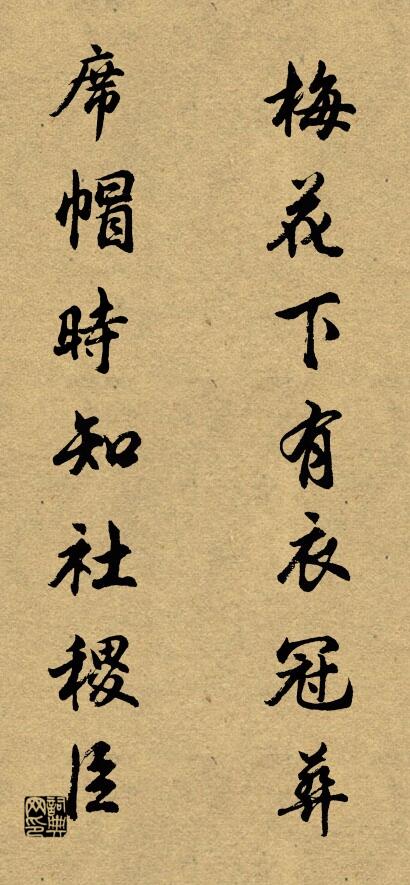 梅花下有衣冠葬
席帽時知社稷臣
詞典网印